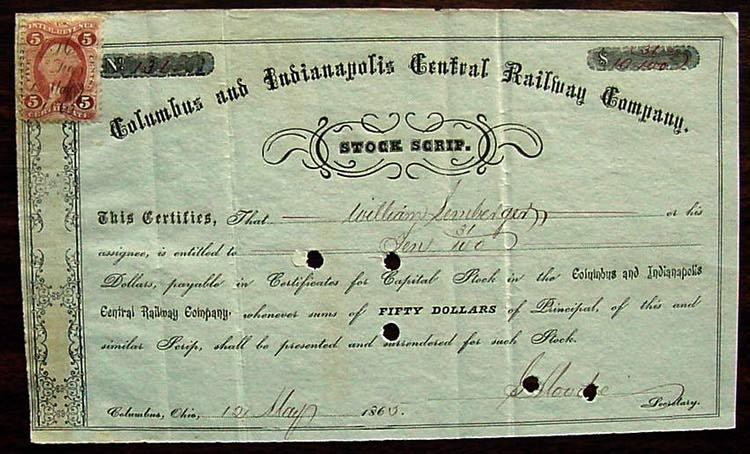 INTER. REVENUE
5 5
5 CENTS 5
CERTIFICATE
No 131
$ 10 31/100
Columbus and Indianapolis Central Railway Company.
STOCK SCRIP.
This Certifies, That William Lemberger or his
assignee, is entitled to Ten 31/100
Dollars, payable in Certificates for Capital Stock in the Columbus and Indianapolis
Central Railway Company, whenever sums of FIFTY DOLLARS of Principal, of this and
similar Scrip, shall be presented and surrendered for such Stock.
Columbus, Ohio, 12 May 1865.
Secretary.